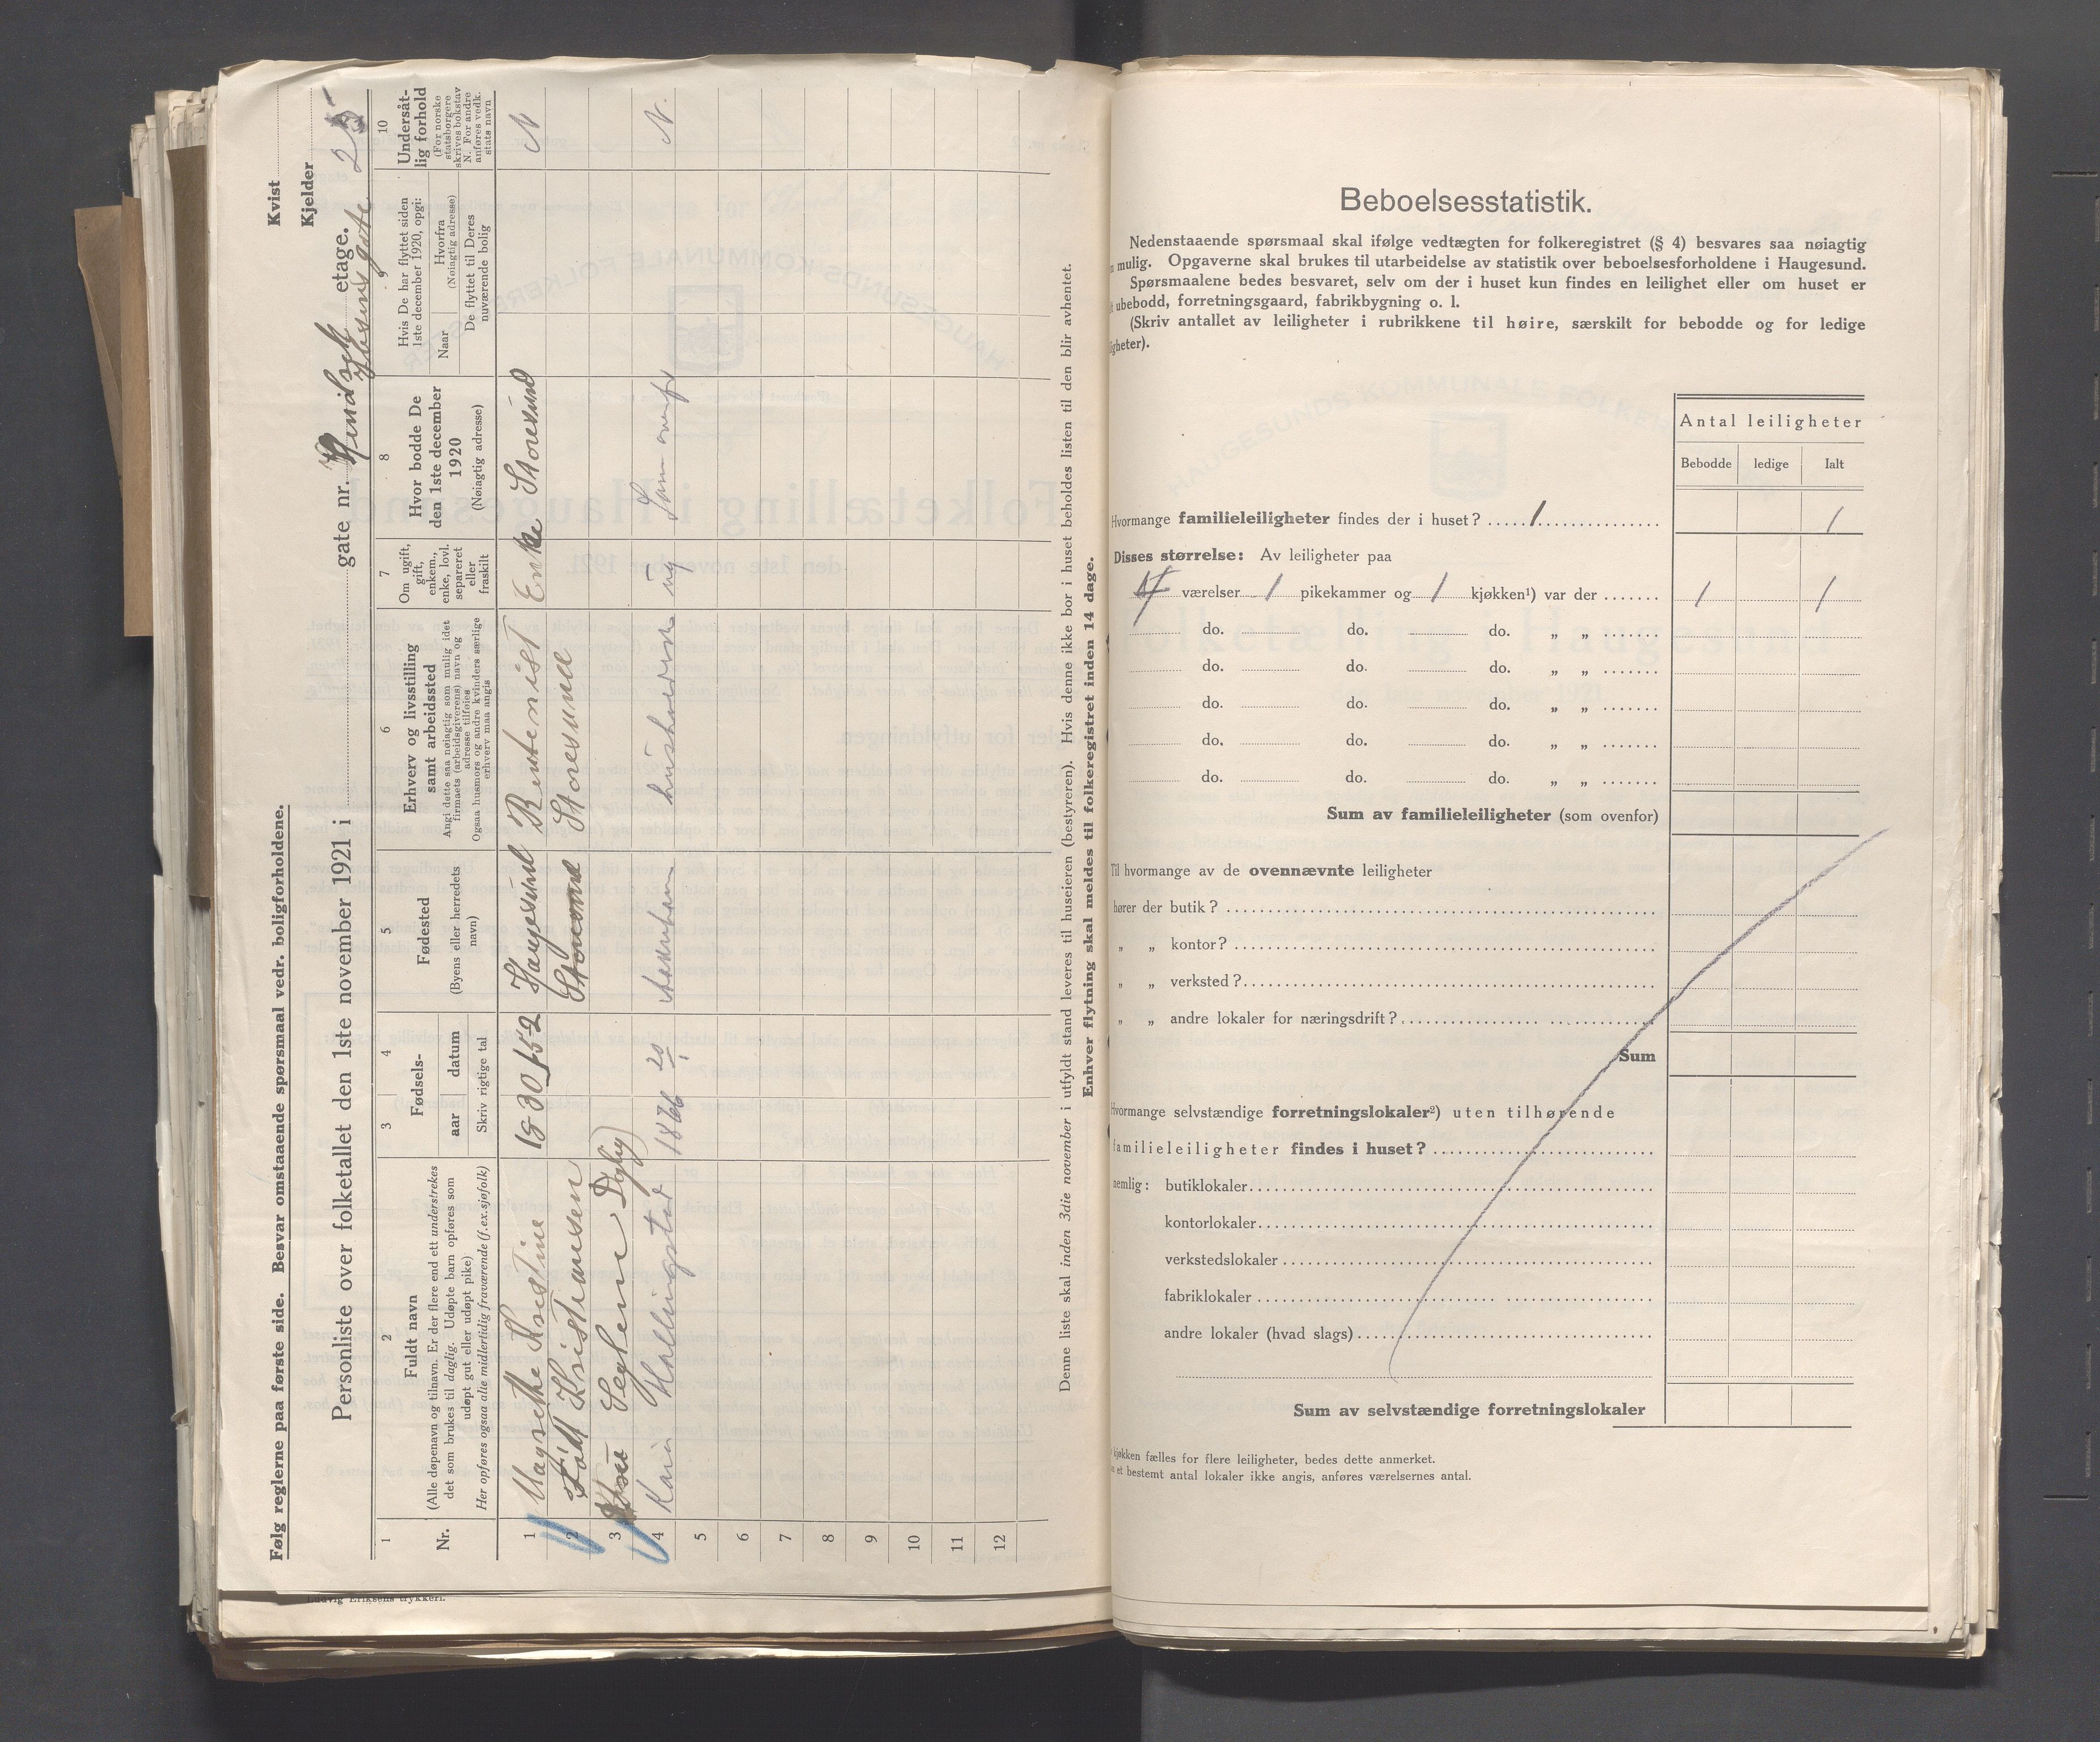 Følg reglerne paa første side. Besvar omstaaende spørsmaal vedr. boligforholdene.
Kvist
Kjelder
Personliste over folketallet den 1ste november 1921 i gate nr. etage.
Ibsens gate 25
1
2
3
4
5
6
7
8
9
10
Nr.
Fuldt navn
(Alle døpenavn og tilnavn. Er der flere end ett understrekes
det som brukes til daglig. Udøpte barn opføres som
udøpt gut eller udøpt pike)
Her opføres ogsaa alle midlertidig fraværende (f.ex. sjøfolk)
Fødsels-
aar datum
Skriv rigtige tal
Fødested
(Byens eller herredets
navn)
Erhverv og livsstilling
samt arbeidssted
Angi dette saa nøiagtig som mulig idet
firmaets (arbeidsgiverens) navn og
adresse tilføies
Ogsaa husmors og andre kvinders særlige
erhverv maa angis
Om ugift,
gift,
enkem.,
enke, lovl.
separeret
eller
fraskilt
Hvor bodde De
den 1ste december
1920
(Nøiagtig adresse)
Hvis De har flyttet siden
1ste december 1920, opgi:
Naar
Hvorfra
(Nøiagtig adresse)
De flyttet til Deres
nuværende bolig
Undersåt-
lig forhold
(For norske
statsborgere
skrives bokstav
N. For andre
anføres vedk.
stats navn
1 Magrethe Kristine 1830 15-2 Haugesund Rentenist Enke Storesund N
2 Født Kristiansen Storesund Storesund
3 Seglem
4 Kari Hallingstad 1866 20 husholderske ug Som ovenfor N.
5
6
7
8
9
10
11
12
Denne liste skal inden 3die november i utfyldt stand leveres til huseieren (bestyreren). Hvis denne ikke bor i huset beholdes listen til den blir avhentet.
Enhver flytning skal meldes til folkeregistret inden 14 dage.
Ludvig Eriksens trykkeri.
Beboelsesstatistik.
Nedenstaaende spørsmaal skal ifølge vedtægten for folkeregistret (§ 4) besvares saa nøiagtig
mulig. Opgaverne skal brukes til utarbeidelse av statistik over beboelsesforholdene i Haugesund.
Spørsmaalene bedes besvaret, selv om der i huset kun findes en leilighet eller om huset er
ubebodd, forretningsgaard, fabrikbygning o. l.
(Skriv antallet av leiligheter i rubrikkene til høire, særskilt for bebodde og for ledige
igheter).
Antal leiligheter
Bebodde ledige Ialt
Hvormange familieleiligheter findes der i huset? 1 1
Disses størrelse: Av leiligheter paa
værelser 1 pikekammer og 1 kjøkken¹) var der 1 1
do. do. do. „ „
do. do. do. „ „
do. do. do. „ „
do. do. do. „ „
do. do. do. „ „
Sum av familieleiligheter (som ovenfor)
Til hvormange av de ovennævnte leiligheter
hører der butik?
„ „ kontor?
„ „ verksted?
„ „ andre lokaler for næringsdrift?
Sum
Hvormange selvstændige forretningslokaler²) uten tilhørende
familieleiligheter findes i huset?
nemlig: butiklokaler
kontorlokaler
verkstedslokaler
fabriklokaler
andre lokaler (hvad slags)
Sum av selvstændige forretningslokaler
kjøkken fælles for flere leiligheter, bedes dette anmerket.
et bestemt antal lokaler ikke angis, anføres værelsernes antal.